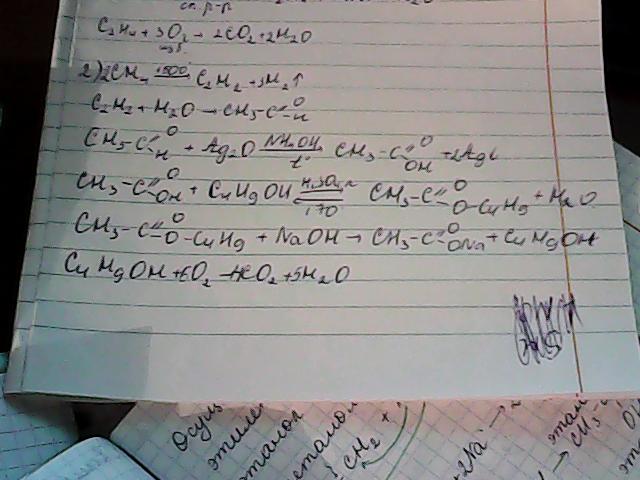 сп. р-р
C₂H₄ + 3O₂ → 2CO₂ + 2H₂O
изб.
2) 2CH₄ 1500° C₂H₂ + 3H₂↑
C₂H₂ + H₂O → CH₃-C=O H
CH₃-C=O H + Ag₂O NH₄OH, t° CH₃-C=O OH + 2Ag↓
CH₃-C=O OH + C₄H₉OH H₂SO₄, 170 CH₃-C=O O-C₄H₉ + H₂O
CH₃-C=O O-C₄H₉ + NaOH → CH₃-C=O ONa + C₄H₉OH
C₄H₉OH + 6O₂ → 4CO₂ + 5H₂O
этилен
этанол
CH₂ +
+2Na
этан
CH₃-